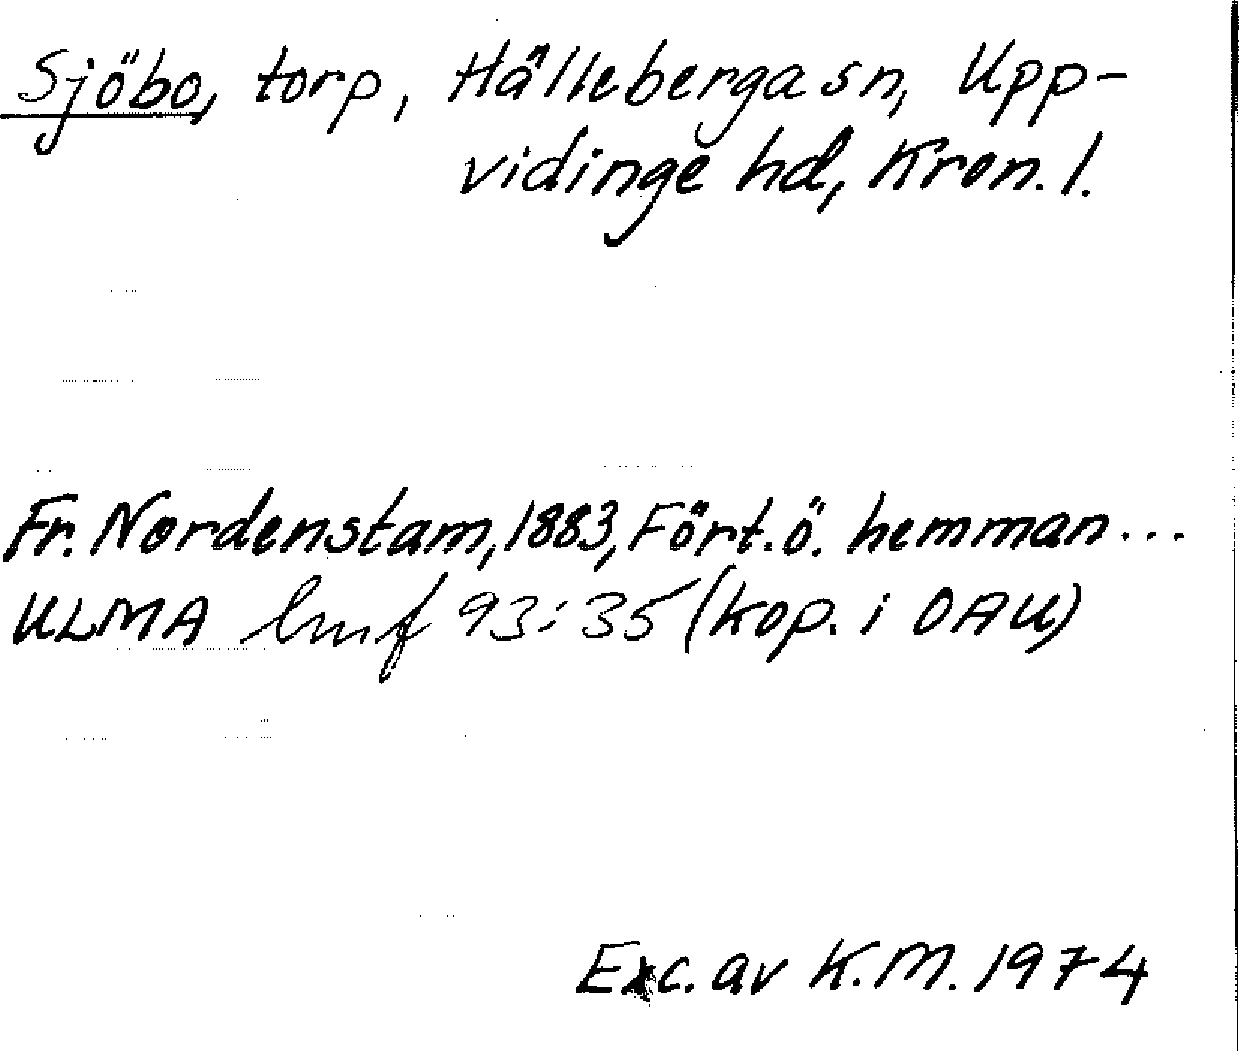 Sjöbo, torp, Hälleberga sn, Upp-
vidinge hd, Kron. l.
Fr. Nordenstam, 1883, Fört. ö. hemman...
ULMA hmf 93:35 (kop. i OAU)
Exc. av K.M. 1974